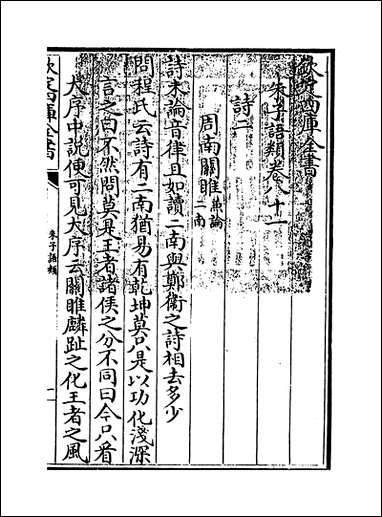 欽定四庫全書
朱子語類卷八十一
詩二
周南關雎兼論二南
詩未論音律且如讀二南與鄭衛之詩相去多少
問程氏云詩有二南猶易有乾坤莫只是以功化淺深
言之曰不然問莫是王者諸侯之分不同曰今只看
大序中說便可見大序云關雎麟趾之化王者之風
欽定四庫全書
朱子語類